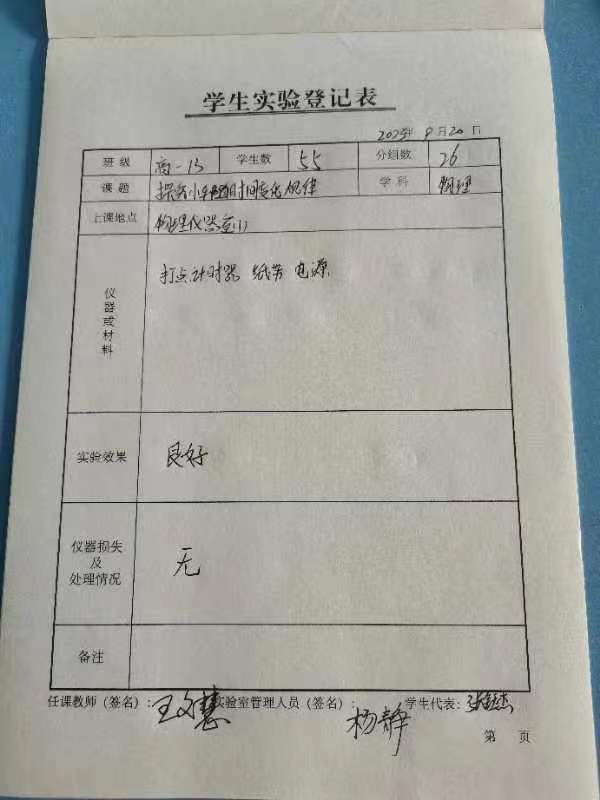 学生实验登记表
2023年 9月20日
班级 高一13 学生数 55 分组数 26
课题 探究小车速度随时间变化规律 学科 物理
上课地点 物理仪器室(1)
仪器或材料 打点计时器 纸带 电源
实验效果 良好
仪器损失及处理情况 无
备注
任课教师(签名): 王文慧 实验室管理人员(签名): 杨静 学生代表:
第 页